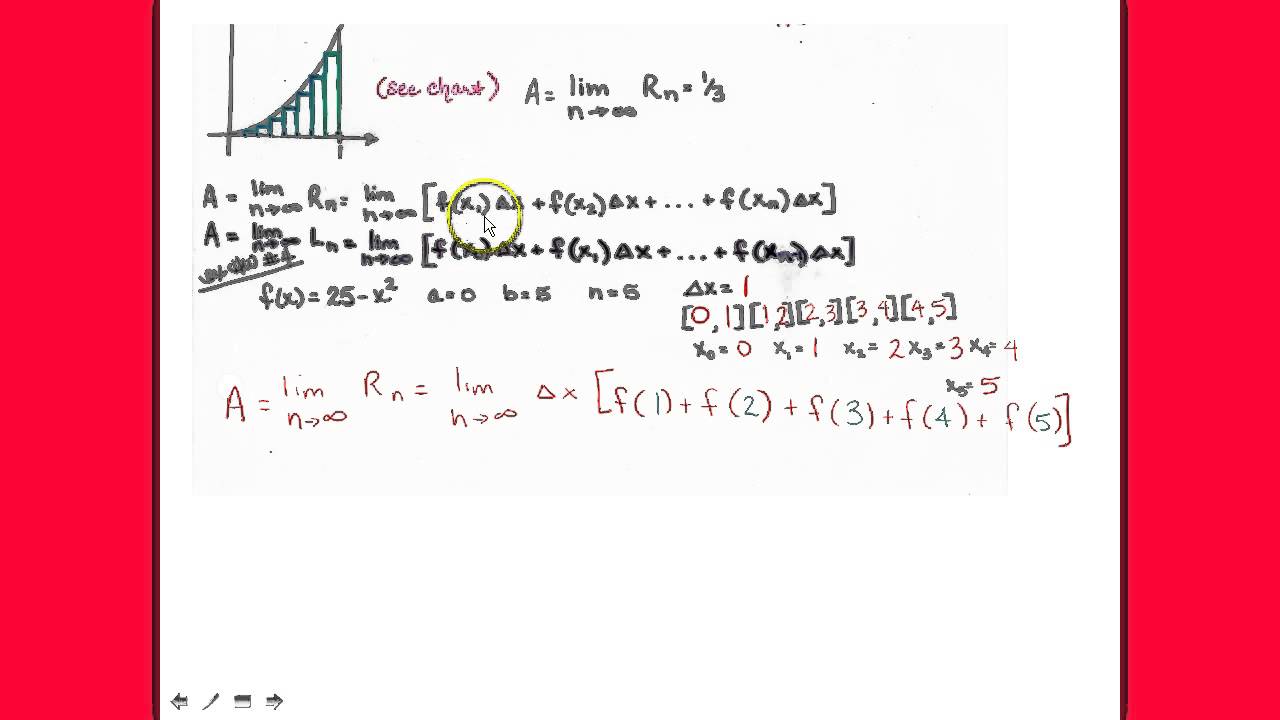 (see chart) A = lim n→∞ Rn = 1/3
1
A = lim n→∞ Rn = lim n→∞ [f(x₁)Δx + f(x₂)Δx + ... + f(xn)Δx]
A = lim n→∞ Ln = lim n→∞ [f(x₀)Δx + f(x₁)Δx + ... + f(xn-1)Δx]
#4
f(x) = 25 - x² a=0 b=5 n=5 Δx = 1
[0, 1][1, 2][2, 3][3, 4][4, 5]
x₀=0 x₁=1 x₂=2 x₃=3 x₄=4
x₅=5
A = lim n→∞ Rn = lim n→∞ Δx [f(1) + f(2) + f(3) + f(4) + f(5)]